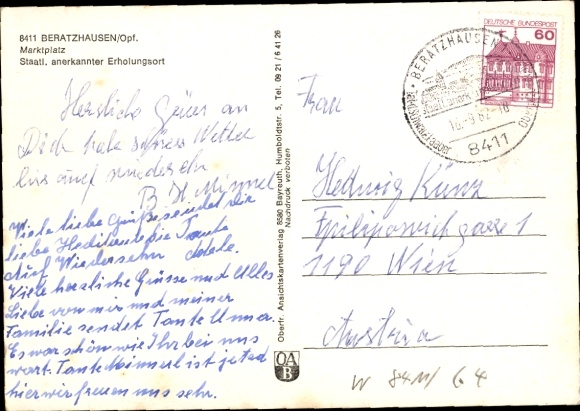 8411 BERATZHAUSEN/Opf.
Marktplatz
Staatl. anerkannter Erholungsort
Herzliche Grüße an
Dich habe schönes Wetter
bis auf wiedersehn
B. H. Minna
Viele liebe Grüße sendet die
liebe Hedi heute die Tante
Auf Wiedersehn
Viele herzliche Grüsse und Alles
Liebe von mir und meiner
Familie sendet Tante Anna.
Es war schön wie Ihr bei uns
wart. Tante ist jetzt
hier wir freuen uns sehr.
Oberfr. Ansichtskartenverlag 8580 Bayreuth, Humboldtstr. 5, Tel. 09 21 / 6 41 26
Nachdruck verboten
OA
B
DEUTSCHE BUNDESPOST
60
BERATZHAUSEN
8411
Frau
Hedwig Künz
1190 Wien
Austria
W 8411/ 64